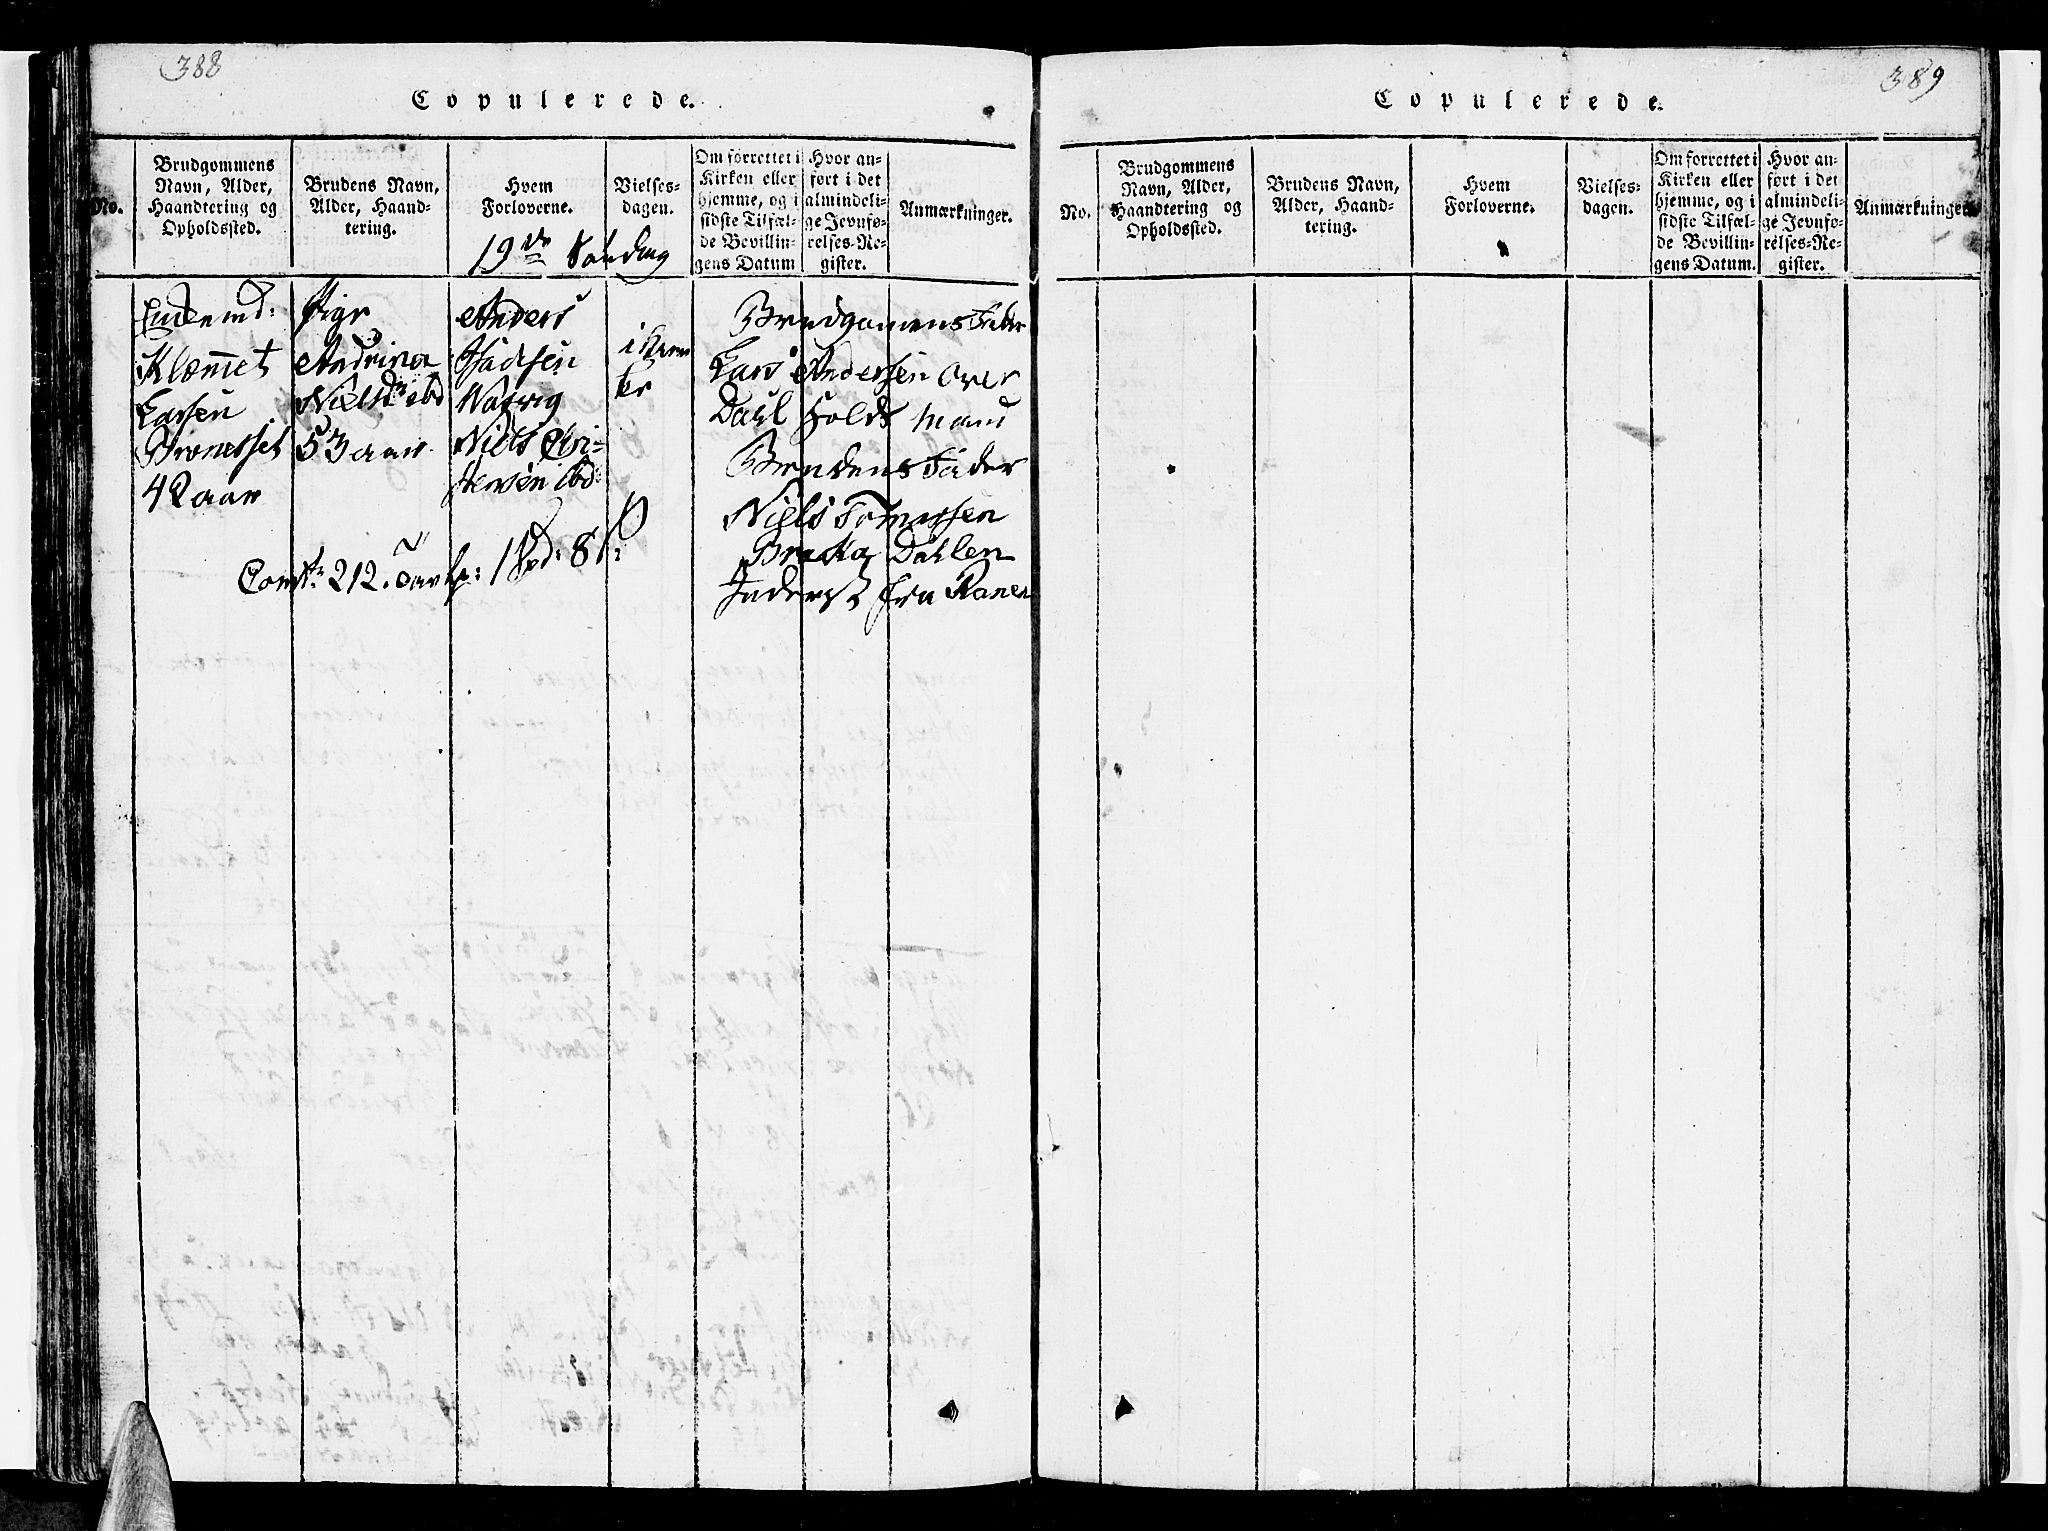 388
Copulerede.
No.
Brudgommens
Navn, Alder,
Haandtering og
Opholdssted.
Brudens Navn,
Alder, Haand-
tering.
Hvem
Forloverne.
Vielses-
dagen.
Om forrettet i
Kirken eller
hjemme, og i
sidste Tilfæl-
de Bevillin-
gens Datum
Hvor an-
ført i det
almindeli-
ge Jevnfø-
relses-Re-
gister.
Anmærkninger.
19de Søndag
Enkemd:
Klæmet
Larsen
42 aar
Pige
Andrina
Nielsdr ibd
53 aar
Anders
Niels Chri-
stensen ibd:
i
Brudgomens Fader
Lars Andersen Over
Dahl Folds mand
Brudens Fader
Niels Tomassen
Dahlen
Inderst fra Ranen
212. 1 Spd: 8
389
Copulerede.
No.
Brudgommens
Navn, Alder,
Haandtering og
Opholdssted.
Brudens Navn,
Alder, Haand-
tering.
Hvem
Forloverne.
Vielses-
dagen.
Om forrettet i
Kirken eller
hjemme, og i
sidste Tilfæl-
de Bevillin-
gens Datum.
Hvor an-
ført i det
almindeli-
ge Jevnfø-
relses-Re-
gister.
Anmærkninger